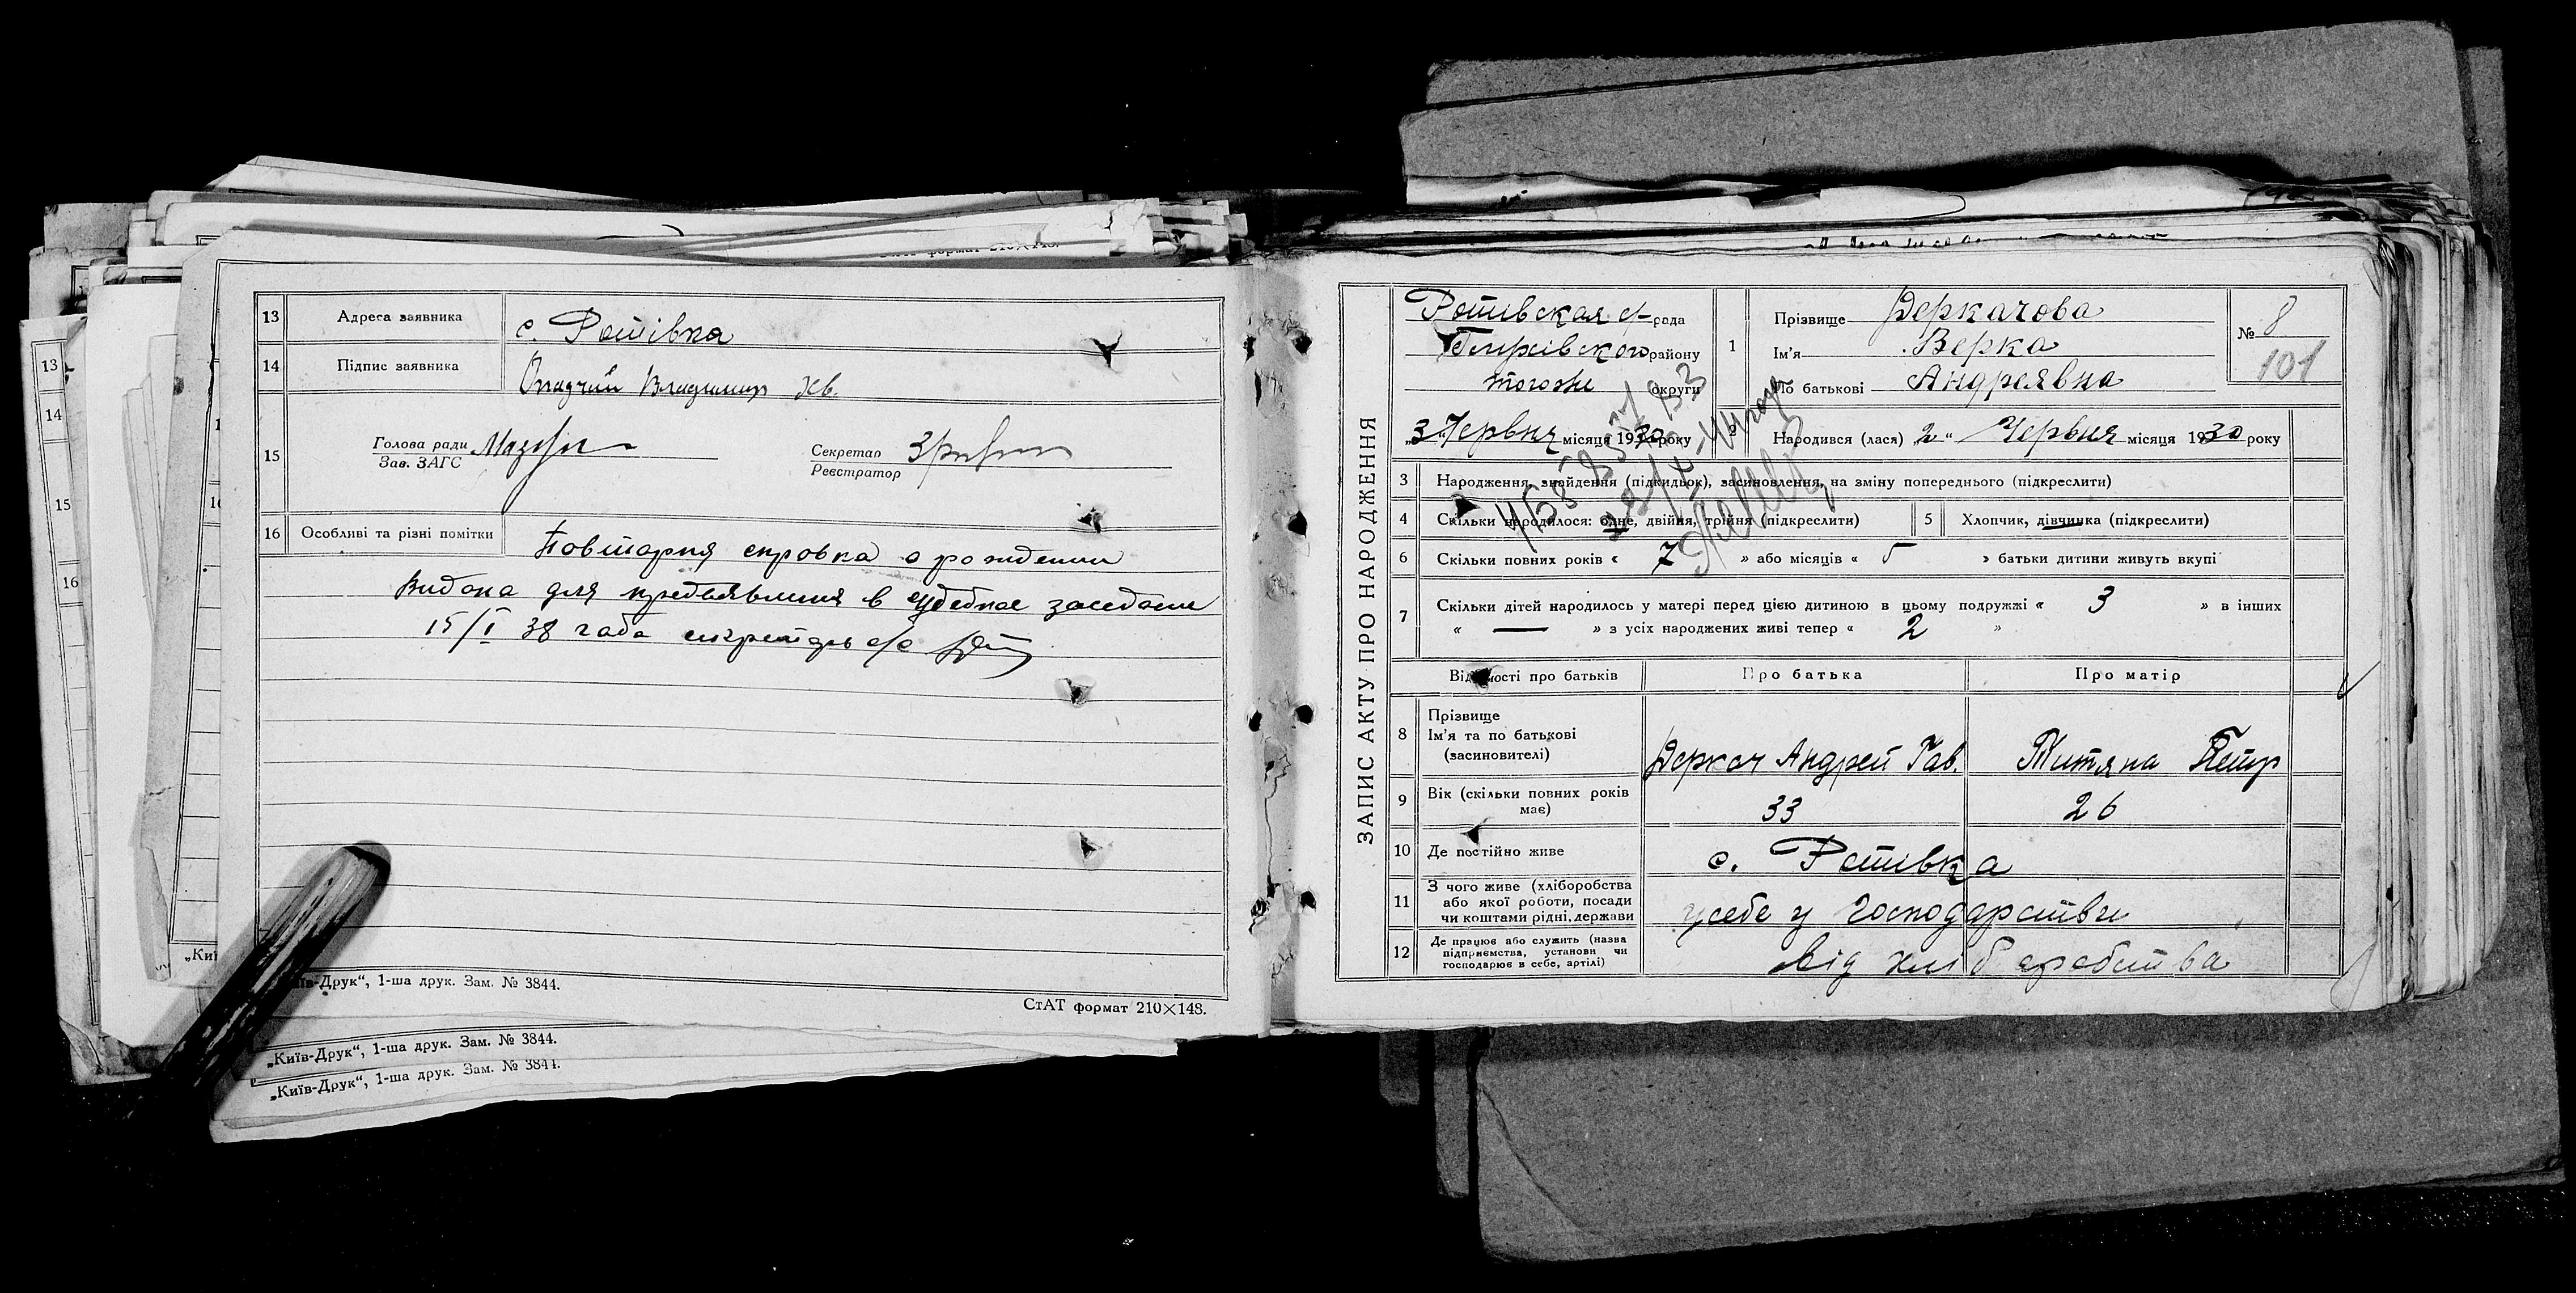 13 Адреса заявника с. Ротівка
14 Підпис заявника Владимир Хв.
15 Голова ради
Зав. ЗАГС
Секретар
Реєстратор
16 Особливі та різні помітки Повторня справка о рождении
видана для предъявления в судебное заседание
15/I 38 года секретарь с/с
„Київ-Друк“, 1-ша друк. Зам. № 3844.
СтАТ формат 210×148.
„Київ-Друк“, 1-ша друк. Зам. № 3844.
„Київ-Друк“, 1-ша друк. Зам. № 3844.
13
14
15
16
ЗАПИС АКТУ ПРО НАРОДЖЕННЯ
рада
району
округи
„3“ Червня місяця 1930 року
1 Прізвище Деркачова
Ім'я Верка
По батькові Андреявна
№ 8
101
2 Народився (лася) 2 “ Червня місяця 1930 року
3 Народження, знайдення (підкидьок), засиновлення, на зміну попереднього (підкреслити)
4 Скільки народилося: одне, двійня, трійня (підкреслити) 5 Хлопчик, дівчинка (підкреслити)
6 Скільки повних років « 7 » або місяців « 5 » батьки дитини живуть вкупі
7 Скільки дітей народилось у матері перед цією дитиною в цьому подружжі « 3 » в інших
« — » з усіх народжених живі тепер « 2 »
Відомості про батьків Про батька Про матір
8 Прізвище
Ім'я та по батькові
(засиновителі)
Деркач Андрей Гав. Титяна Петр
9 Вік (скільки повних років
має)
33 26
10 Де постійно живе с. Ротівка
11 З чого живе (хліборобства
або якої роботи, посади
чи коштами рідні, держави
усебе у господарстви
12 Де працює або служить (назва
підприємства, установи чи
господарює в себе, артілі)
від хліборобства